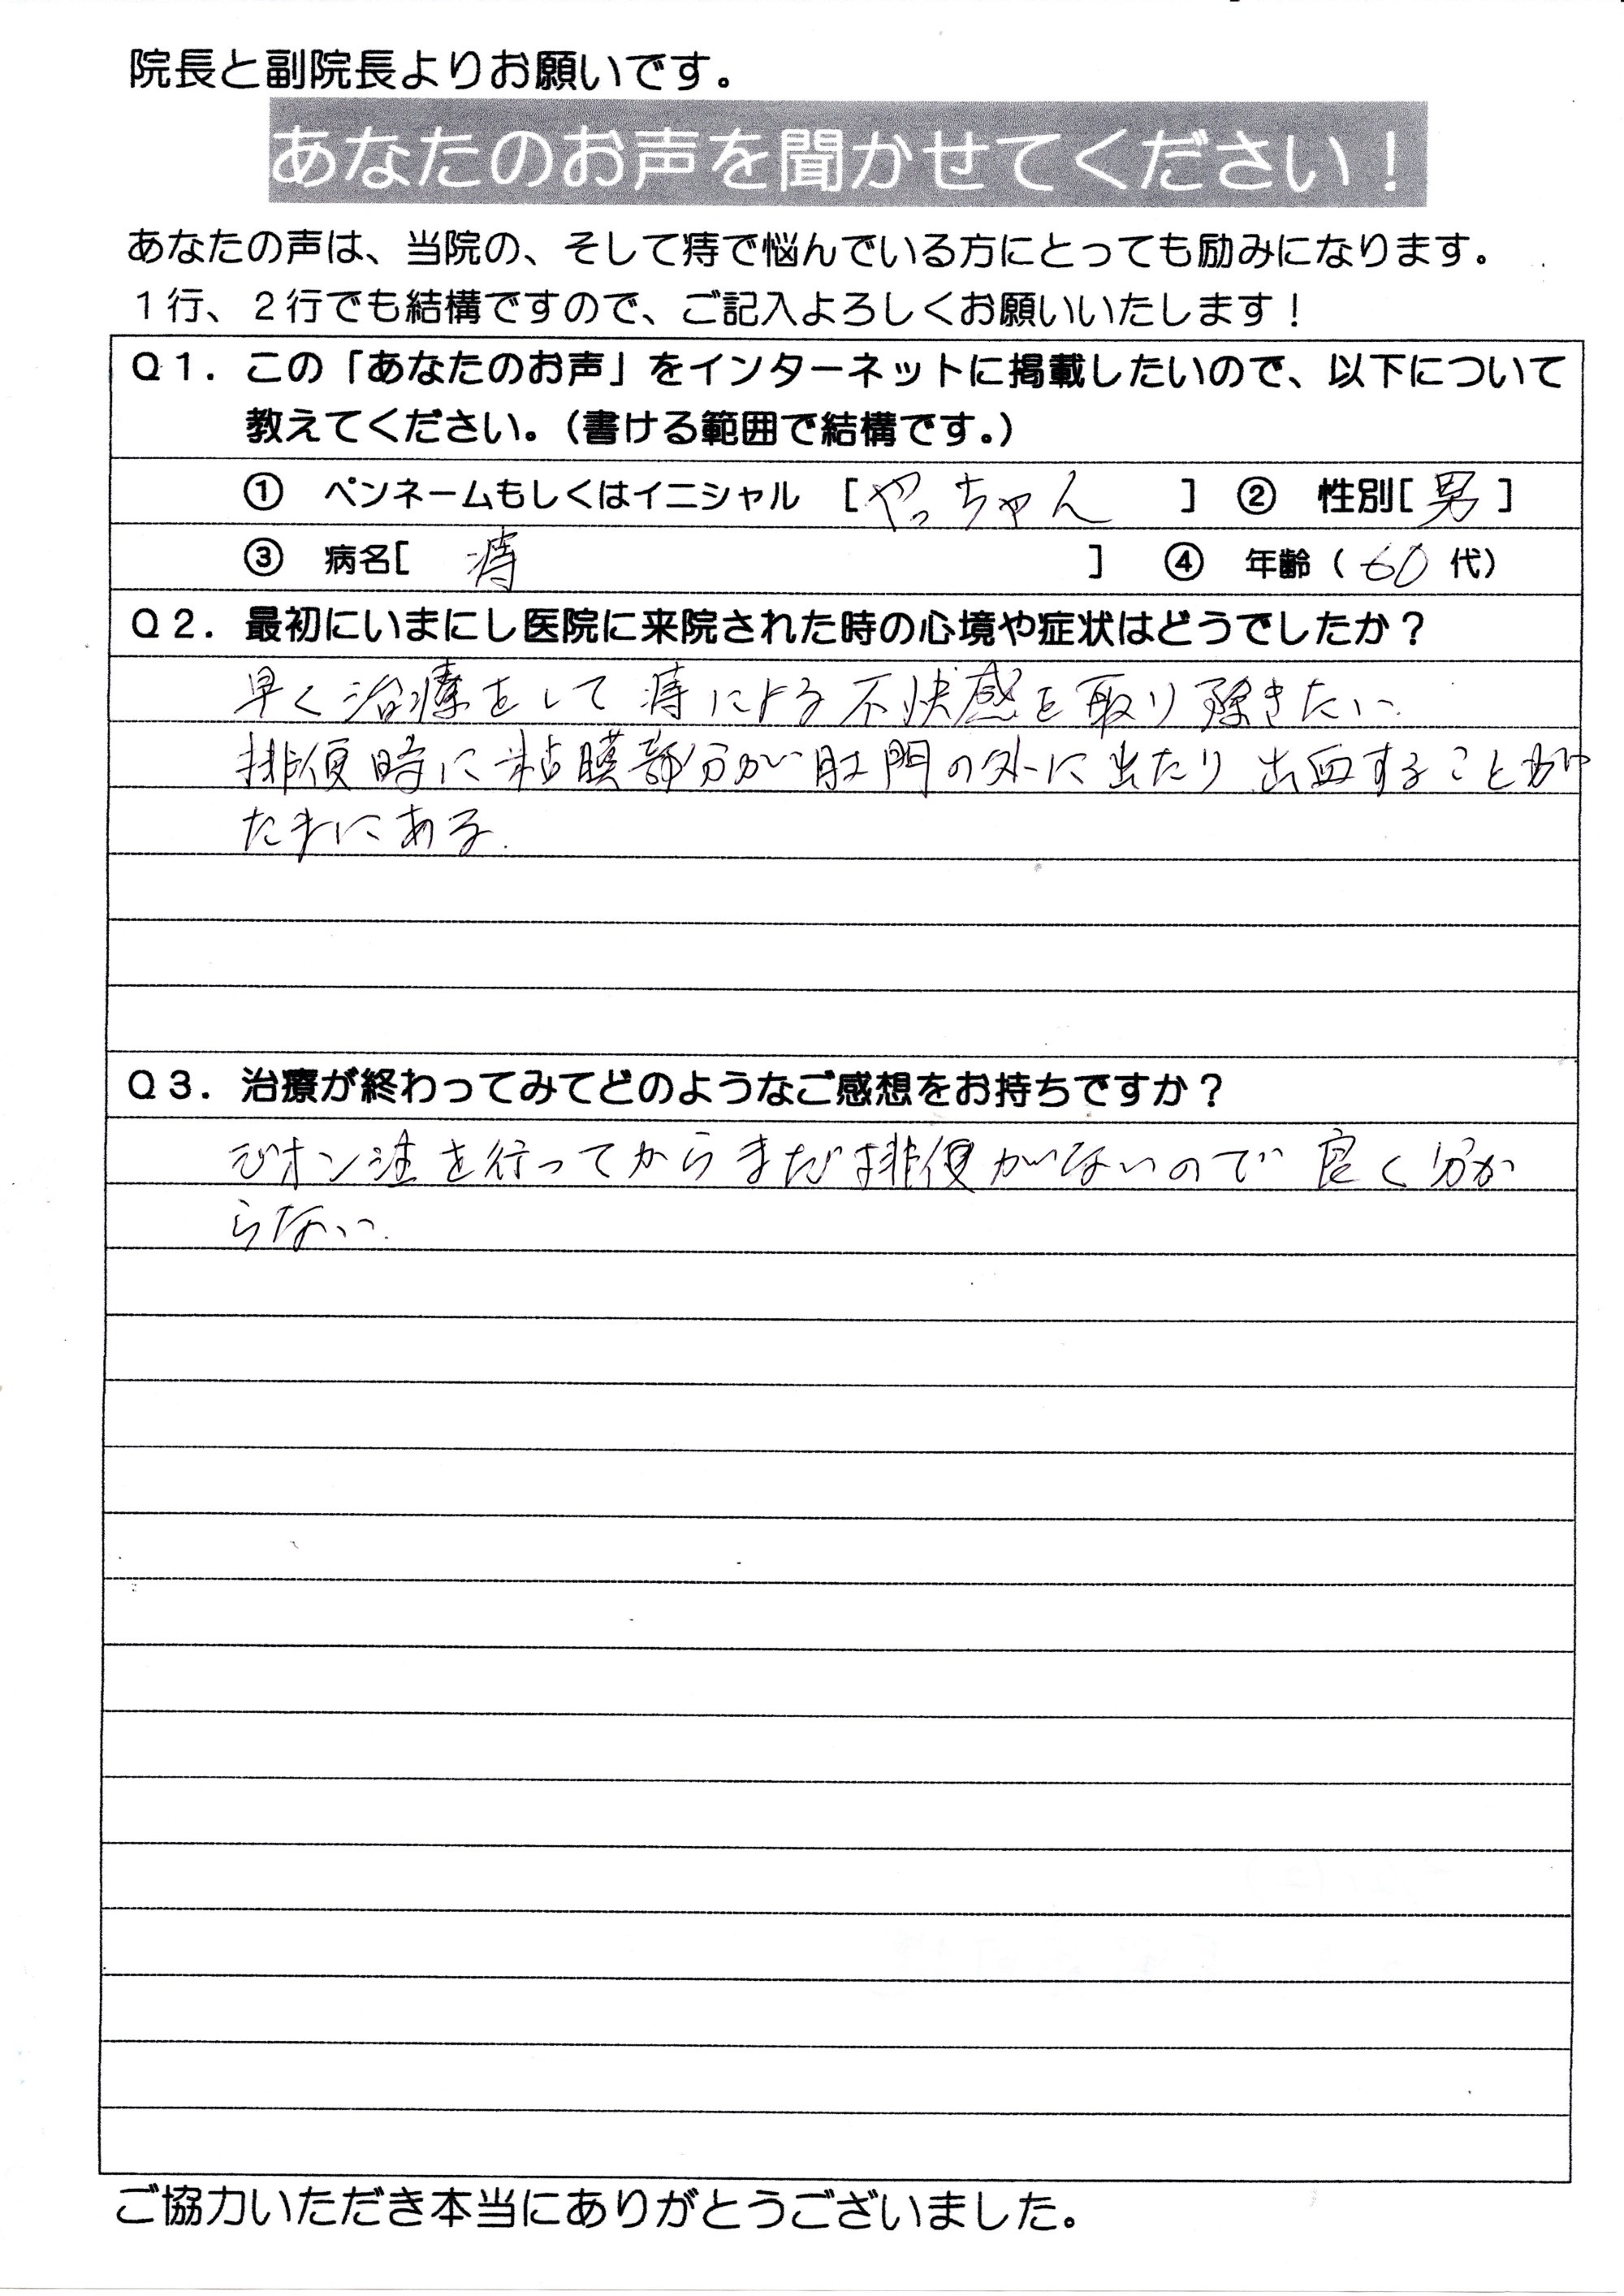 院長と副院長よりお願いです。
あなたのお声を聞かせてください！
あなたの声は、当院の、そして痔で悩んでいる方にとっても励みになります。
１行、２行でも結構ですので、ご記入よろしくお願いいたします！
Ｑ１．この「あなたのお声」をインターネットに掲載したいので、以下について
教えてください。（書ける範囲で結構です。）
① ペンネームもしくはイニシャル ［やっちゃん］ ② 性別［男］
③ 病名［痔］ ④ 年齢（60代）
Ｑ２．最初にいまにし医院に来院された時の心境や症状はどうでしたか？
早く治療をして痔による不快感を取り除きたい.
排便時に粘膜部分が肛門の外に出たり出血することが
たまにある.
Ｑ３．治療が終わってみてどのようなご感想をお持ちですか？
ジオン注を行ってからまだ排便がないので良く分か
らない.
ご協力いただき本当にありがとうございました。